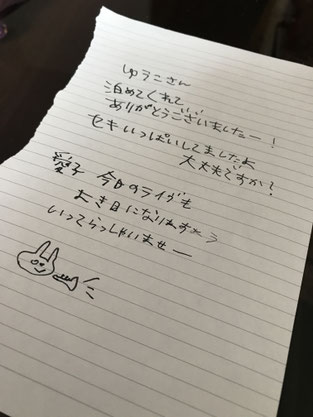 ゆうこさん
泊めてくれて
ありがとうございましたー!
セキいっぱいしてましたよ
大丈夫ですか?
愛子 今日のライヴも
よき日になりますよう
いってらっしゃいませー